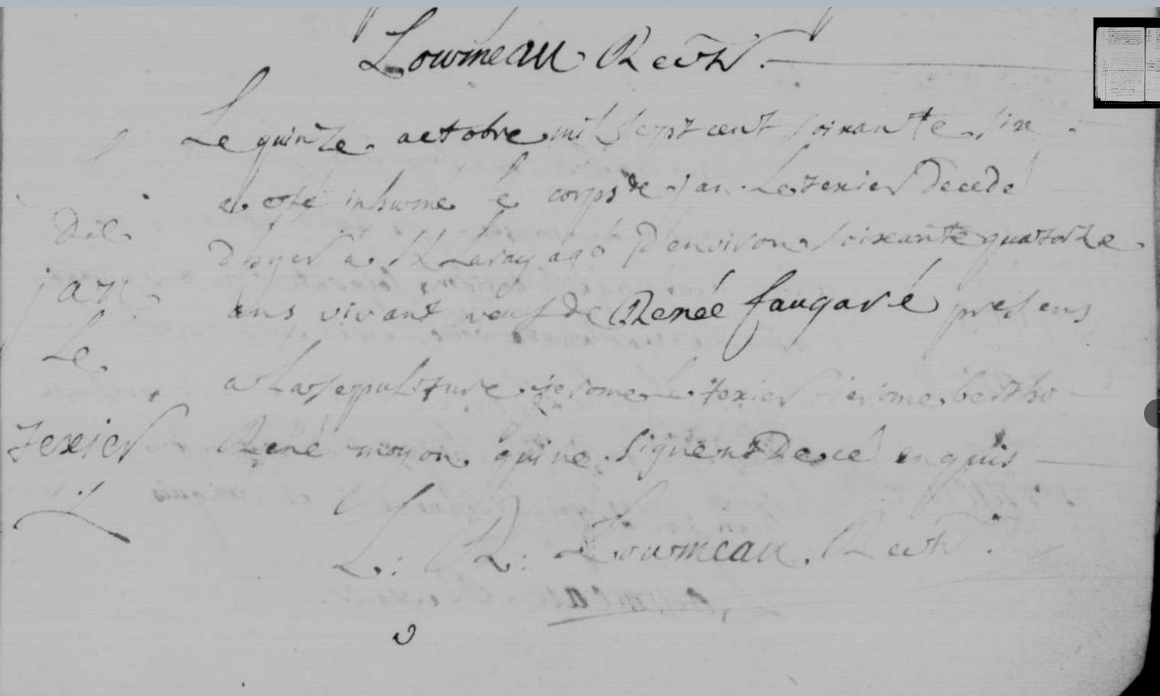 Lourmeau Rect^r.
Le quinze actobre mil sept cent soixante six
a esté inhumé le corps de jan Le texier decedé
d'hyer a agé d'environ soixante quatorze
ans vivant veuf de Renée faugaré presens
a la sepulture jerome Le texier jerome bertho
René moyon qui ne signent De ce enquis
L: R: Lourmeau Rect^r.
Dec
jan
Le
texier